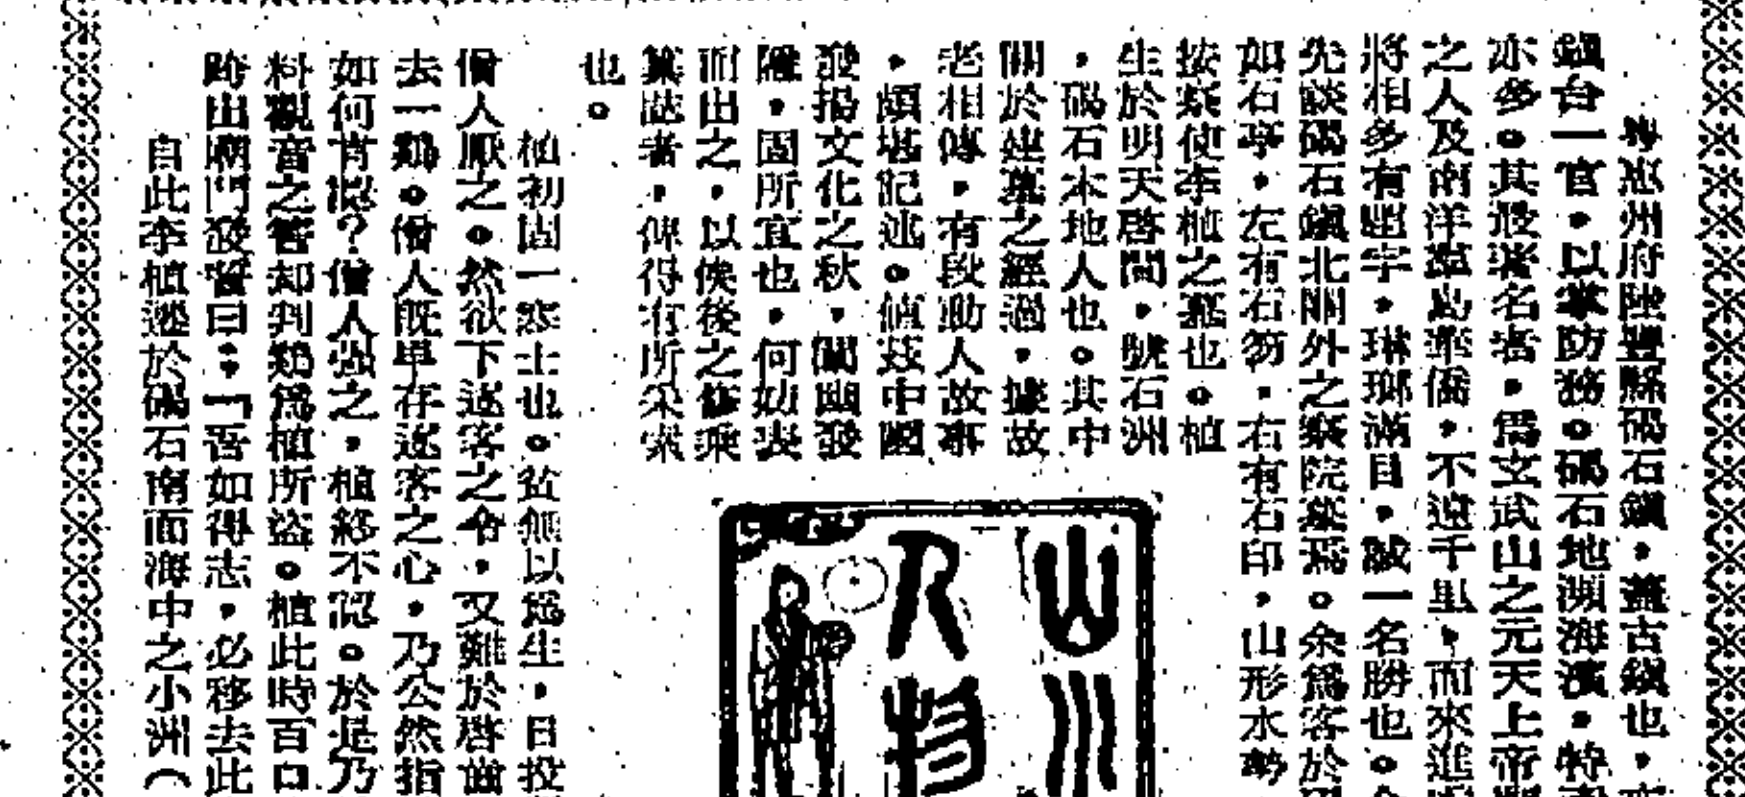 粤惠州府陸豐縣碣石鎭,蓋古鎭也,
鎭台一官,以掌防務。碣石地瀕海濱,特
亦多。其最著名者,爲玄武山之元天上帝
之人及南洋羣島華僑,不遠千里,而來進
將相多有題字,琳瑯滿目,誠一名勝也。
先談碣石鎭北關外之察院墓焉。余爲客於
如石亭,左有石笏,右有石印,山形水勢
按察使李植之墓也。植
生於明天啓間,號石洲
,碣石本地人也。其中
關於建墓之經過,據故
老相傳,有段動人故事
,頗堪記述。値茲中國
發揚文化之秋,闡幽發
隱,固所宜也,何妨表
而出之,以俟後之修乘
纂誌者,俾得有所采索
也。
植初固一寒士也。貧無以爲生,日投
僧人厭之。然欲下逐客之令,又難於啓齒
去一鷄。僧人旣早存逐客之心,乃公然指
如何肯認?僧人强之,植終不認。於是乃
料觀音之筶却判鷄爲植所盜。植此時百口
跨出廟門發誓曰:「吾如得志,必移去此
自此李植遂於碣石南面海中之小洲(
山川
人物